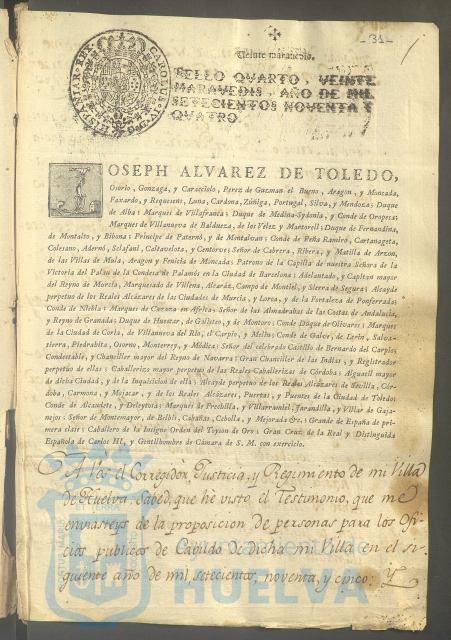 -31-
Veinte maravedis.
SELLO QUARTO, VEINTE
MARAVEDIS, AÑO DE MIL
SETECIENTOS NOVENTA Y
QVATRO.
HISPANIAR. REX CAROLUS IV D.G.
JOSEPH ALVAREZ DE TOLEDO,
Osorio, Gonzaga, y Caracciolo, Perez de Guzman el Bueno, Aragon, y Moncada,
Faxardo, y Requesens, Luna, Cardona, Zúñiga, Portugal, Silva, y Mendoza; Duque
de Alba: Marques de Villafranca: Duque de Medina-Sydonia, y Conde de Oropesa:
Marques de Villanueva de Baldueza, de los Velez y Martorell: Duque de Fernandina,
de Montalto, y Bibona: Principe de Paternó, y de Montalvan: Conde de Peña Ramiro, Cartanageta,
Colesano, Adernó, Sclafani, Caltavelota, y Centorve: Señor de Cabrera, Ribera, y Matilla de Arzon,
de las Villas de Mula, Aragon y Fenicia de Moncada: Patrono de la Capilla de nuestra Señora de la
Victoria del Palau de la Condesa de Palamós en la Ciudad de Barcelona: Adelantado, y Capitan mayor
del Reyno de Murcia, Marquesado de Villena, Alcaráz, Campo de Montiel, y Sierra de Segura: Alcayde
perpetuo de los Reales Alcázares de las Ciudades de Murcia, y Lorca, y de la Fortaleza de Ponferrada:
Conde de Niebla: Marques de Cazaza en Africa: Señor de las Almadrabas de las Costas de Andalucía,
y Reyno de Granada: Duque de Huescar, de Galisteo, y de Montoro: Conde Duque de Olivares: Marques
de la Ciudad de Coria, de Villanueva del Rio, el Carpio, y Mello: Conde de Galve, de Lerin, Salva-
tierra, Piedrahita, Osorno, Monterrey, y Módica: Señor del celebrado Castillo de Bernardo del Carpio:
Condestable, y Chanciller mayor del Reyno de Navarra: Gran Chanciller de las Indias, y Registrador
perpetuo de ellas: Caballerizo mayor perpetuo de las Reales Caballerizas de Córdoba: Alguacil mayor
de dicha Ciudad, y de la Inquisicion de ella: Alcayde perpetuo de los Reales Alcázares de Sevilla, Cór-
doba, Carmona, y Mojacar, y de los Reales Alcázares, Puertas, y Puentes de la Ciudad de Toledo:
Conde de Alcaudete, y Deleytosa: Marques de Frechilla, y Villarramiel, Jarandilla, y Villar de Gaja-
nejos: Señor de Montemayor, de Belbis, Cabañas, Cebolla, y Mejorada &c. Grande de España de pri-
mera clase: Caballero de la Insigne Orden del Toyson de Oro: Gran Cruz de la Real y Distinguida
Española de Carlos III, y Gentilhombre de Cámara de S. M. con exercicio.
A los el Corregidor, Justicia, y Regimiento de mi Villa
de Huelva. Sabed, que hè visto el Testimonio, que me
enviasteys de la proposicion de personas para los Ofi-
cios publicos de Capildo de dicha mi Villa en el si-
guiente año de mil setecientos, noventa, y cinco: Y
Ayuntamiento de
HUELVA